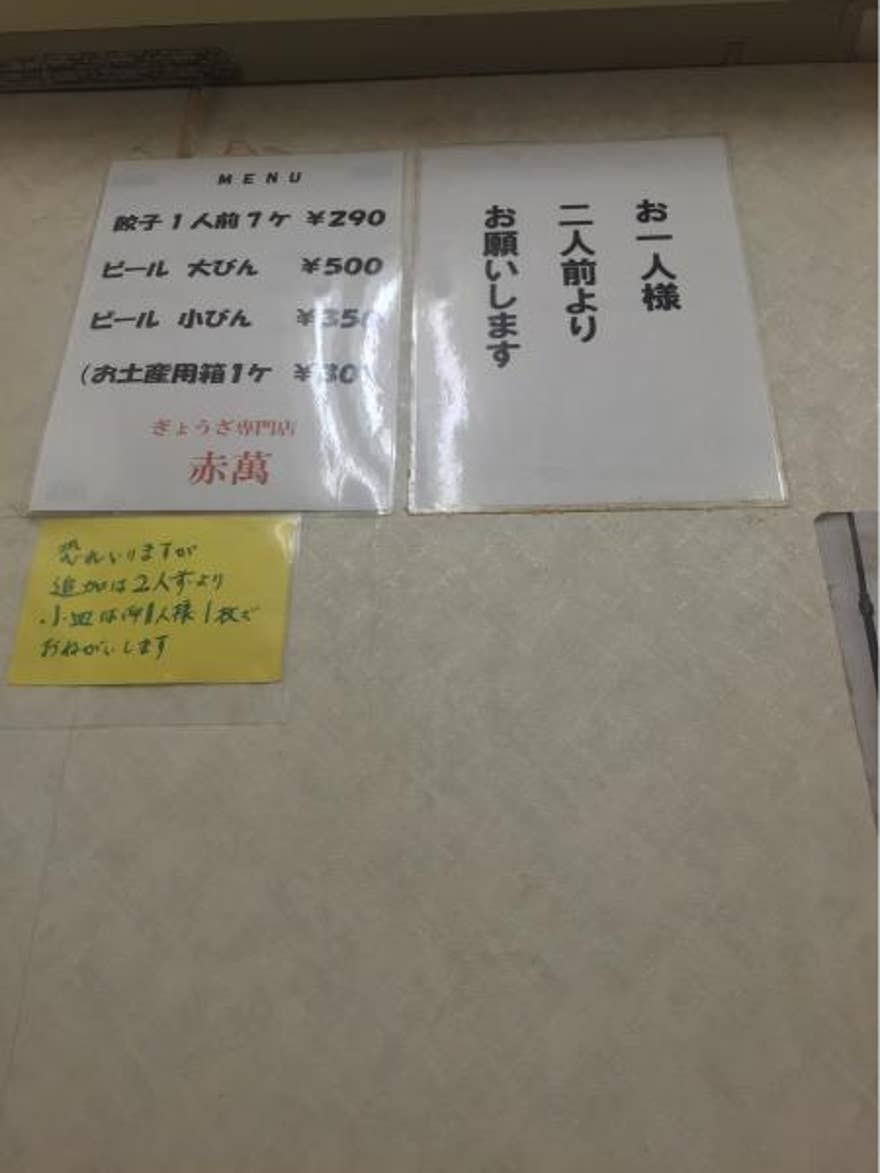 MENU
餃子1人前7ケ ¥290
ビール 大びん ¥500
ビール 小びん ¥350
(お土産用箱1ケ ¥30)
ぎょうざ専門店
赤萬
お一人様
二人前より
お願いします
恐れいりますが
追加は2人まえより
小皿は御1人様1枚で
おねがいします